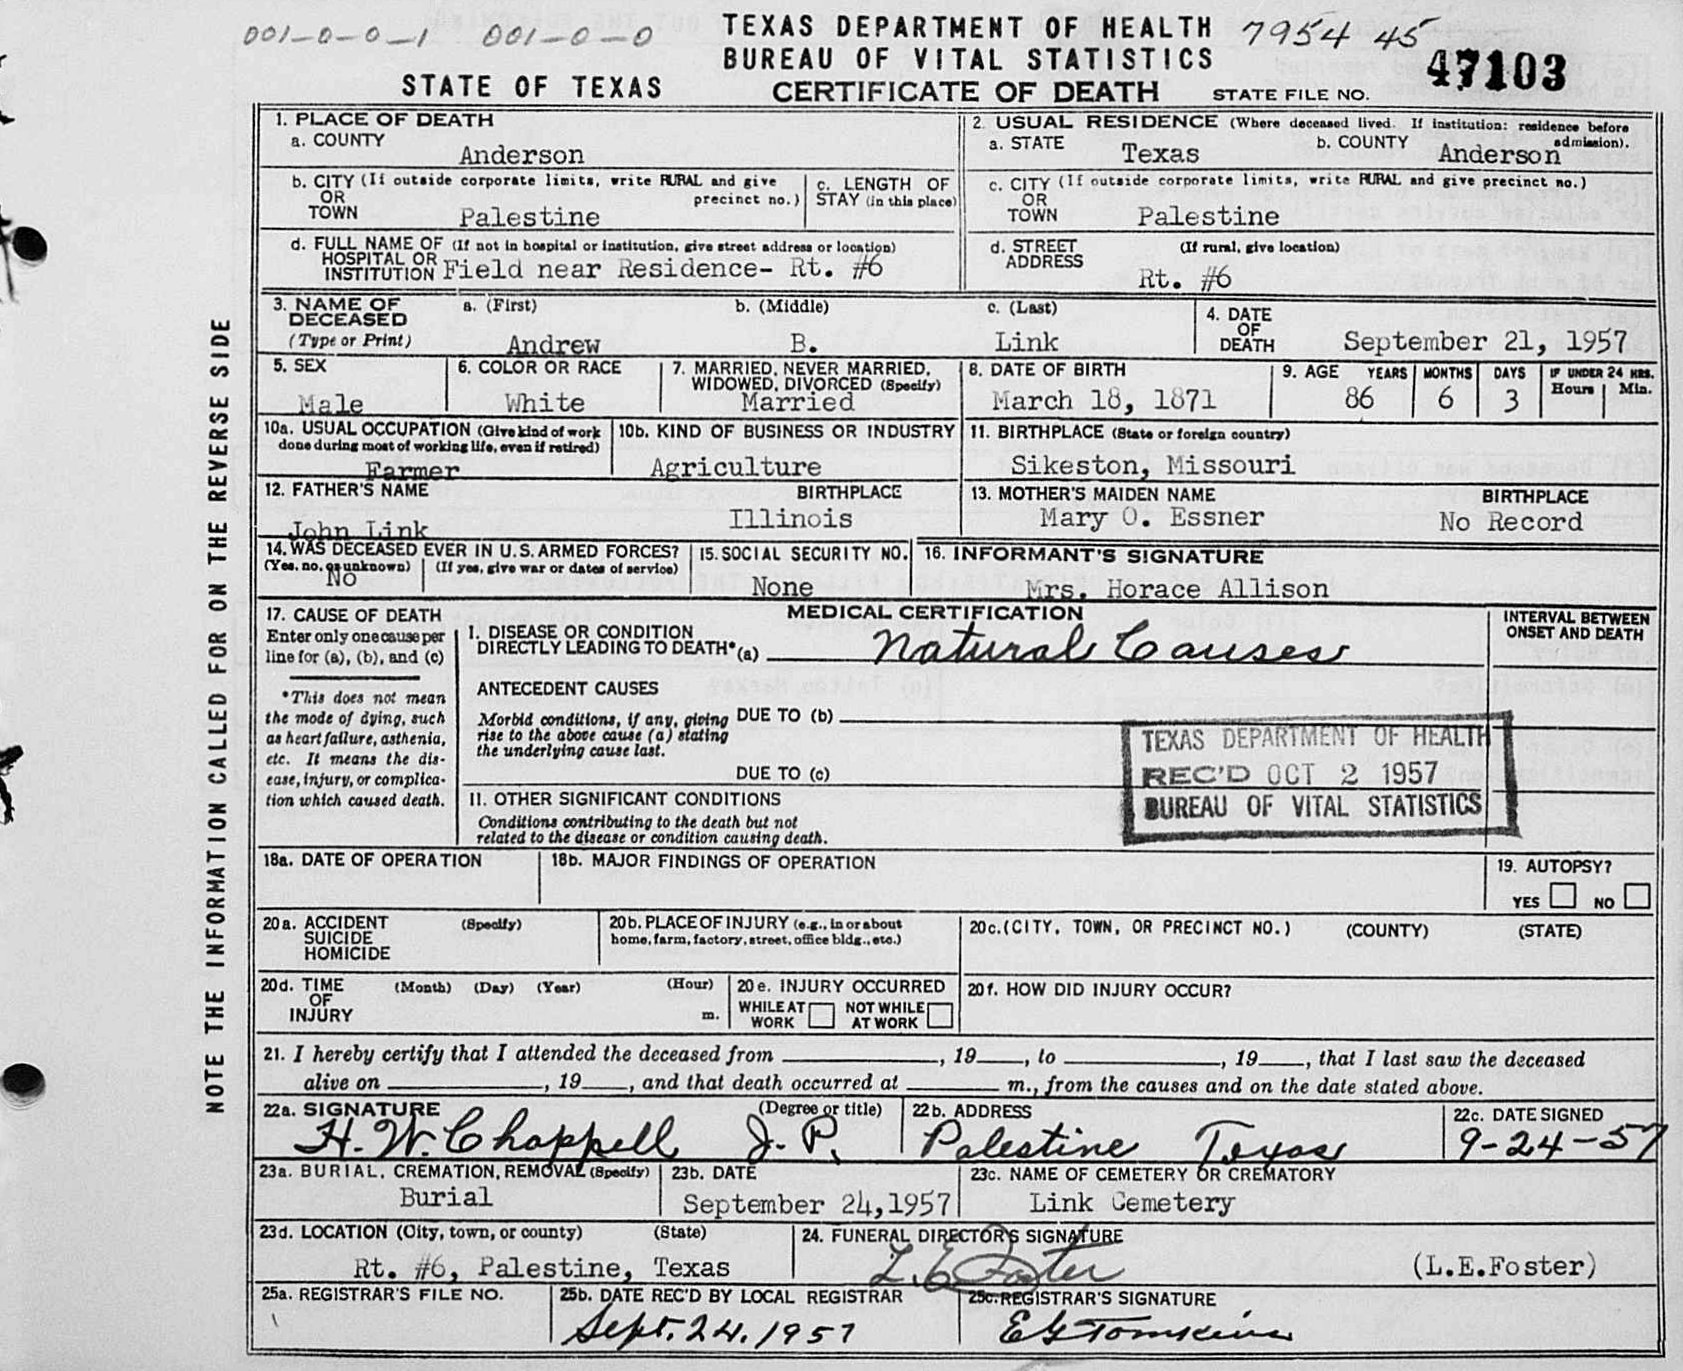 001-0-0-1 001-0-0
TEXAS DEPARTMENT OF HEALTH 7954 45
BUREAU OF VITAL STATISTICS
STATE OF TEXAS CERTIFICATE OF DEATH STATE FILE NO. 47103
NOTE THE INFORMATION CALLED FOR ON THE REVERSE SIDE
1. PLACE OF DEATH
a. COUNTY
Anderson
2. USUAL RESIDENCE (Where deceased lived. If institution: residence before admission).
a. STATE Texas b. COUNTY Anderson
b. CITY (If outside corporate limits, write RURAL and give precinct no.)
OR
TOWN Palestine
c. LENGTH OF
STAY (in this place)
c. CITY (If outside corporate limits, write RURAL and give precinct no.)
OR
TOWN Palestine
d. FULL NAME OF (If not in hospital or institution, give street address or location)
HOSPITAL OR
INSTITUTION Field near Residence- Rt. #6
d. STREET (If rural, give location)
ADDRESS
Rt. #6
3. NAME OF a. (First) b. (Middle) c. (Last)
DECEASED
(Type or Print) Andrew B. Link
4. DATE
OF
DEATH September 21, 1957
5. SEX
Male
6. COLOR OR RACE
White
7. MARRIED, NEVER MARRIED,
WIDOWED, DIVORCED (Specify)
Married
8. DATE OF BIRTH
March 18, 1871
9. AGE YEARS MONTHS DAYS IF UNDER 24 HRS.
Hours Min.
86 6 3
10a. USUAL OCCUPATION (Give kind of work
done during most of working life, even if retired)
Farmer
10b. KIND OF BUSINESS OR INDUSTRY
Agriculture
11. BIRTHPLACE (State or foreign country)
Sikeston, Missouri
12. FATHER'S NAME BIRTHPLACE
John Link Illinois
13. MOTHER'S MAIDEN NAME BIRTHPLACE
Mary O. Essner No Record
14. WAS DECEASED EVER IN U.S. ARMED FORCES?
(Yes, no, or unknown) (If yes, give war or dates of service)
No
15. SOCIAL SECURITY NO.
None
16. INFORMANT'S SIGNATURE
Mrs. Horace Allison
17. CAUSE OF DEATH
Enter only one cause per
line for (a), (b), and (c)
*This does not mean
the mode of dying, such
as heart failure, asthenia,
etc. It means the dis-
ease, injury, or complica-
tion which caused death.
MEDICAL CERTIFICATION
I. DISEASE OR CONDITION
DIRECTLY LEADING TO DEATH* (a) Natural Causes
ANTECEDENT CAUSES
Morbid conditions, if any, giving
rise to the above cause (a) stating
the underlying cause last.
DUE TO (b)
DUE TO (c)
II. OTHER SIGNIFICANT CONDITIONS
Conditions contributing to the death but not
related to the disease or condition causing death.
INTERVAL BETWEEN
ONSET AND DEATH
TEXAS DEPARTMENT OF HEALTH
REC'D OCT 2 1957
BUREAU OF VITAL STATISTICS
18a. DATE OF OPERATION
18b. MAJOR FINDINGS OF OPERATION
19. AUTOPSY?
YES NO
20a. ACCIDENT (Specify)
SUICIDE
HOMICIDE
20b. PLACE OF INJURY (e.g., in or about
home, farm, factory, street, office bldg., etc.)
20c. (CITY, TOWN, OR PRECINCT NO.) (COUNTY) (STATE)
20d. TIME (Month) (Day) (Year) (Hour)
OF
INJURY m.
20e. INJURY OCCURRED
WHILE AT WORK NOT WHILE AT WORK
20f. HOW DID INJURY OCCUR?
21. I hereby certify that I attended the deceased from , 19 , to , 19 , that I last saw the deceased
alive on , 19 , and that death occurred at m., from the causes and on the date stated above.
22a. SIGNATURE (Degree or title)
H. W. Chappell J. P.
22b. ADDRESS
Palestine Texas
22c. DATE SIGNED
9-24-57
23a. BURIAL, CREMATION, REMOVAL (Specify)
Burial
23b. DATE
September 24,1957
23c. NAME OF CEMETERY OR CREMATORY
Link Cemetery
23d. LOCATION (City, town, or county) (State)
Rt. #6, Palestine, Texas
24. FUNERAL DIRECTOR'S SIGNATURE
L. E. Foster (L.E.Foster)
25a. REGISTRAR'S FILE NO.
25b. DATE REC'D BY LOCAL REGISTRAR
Sept. 24, 1957
25c. REGISTRAR'S SIGNATURE
E G Tomkins